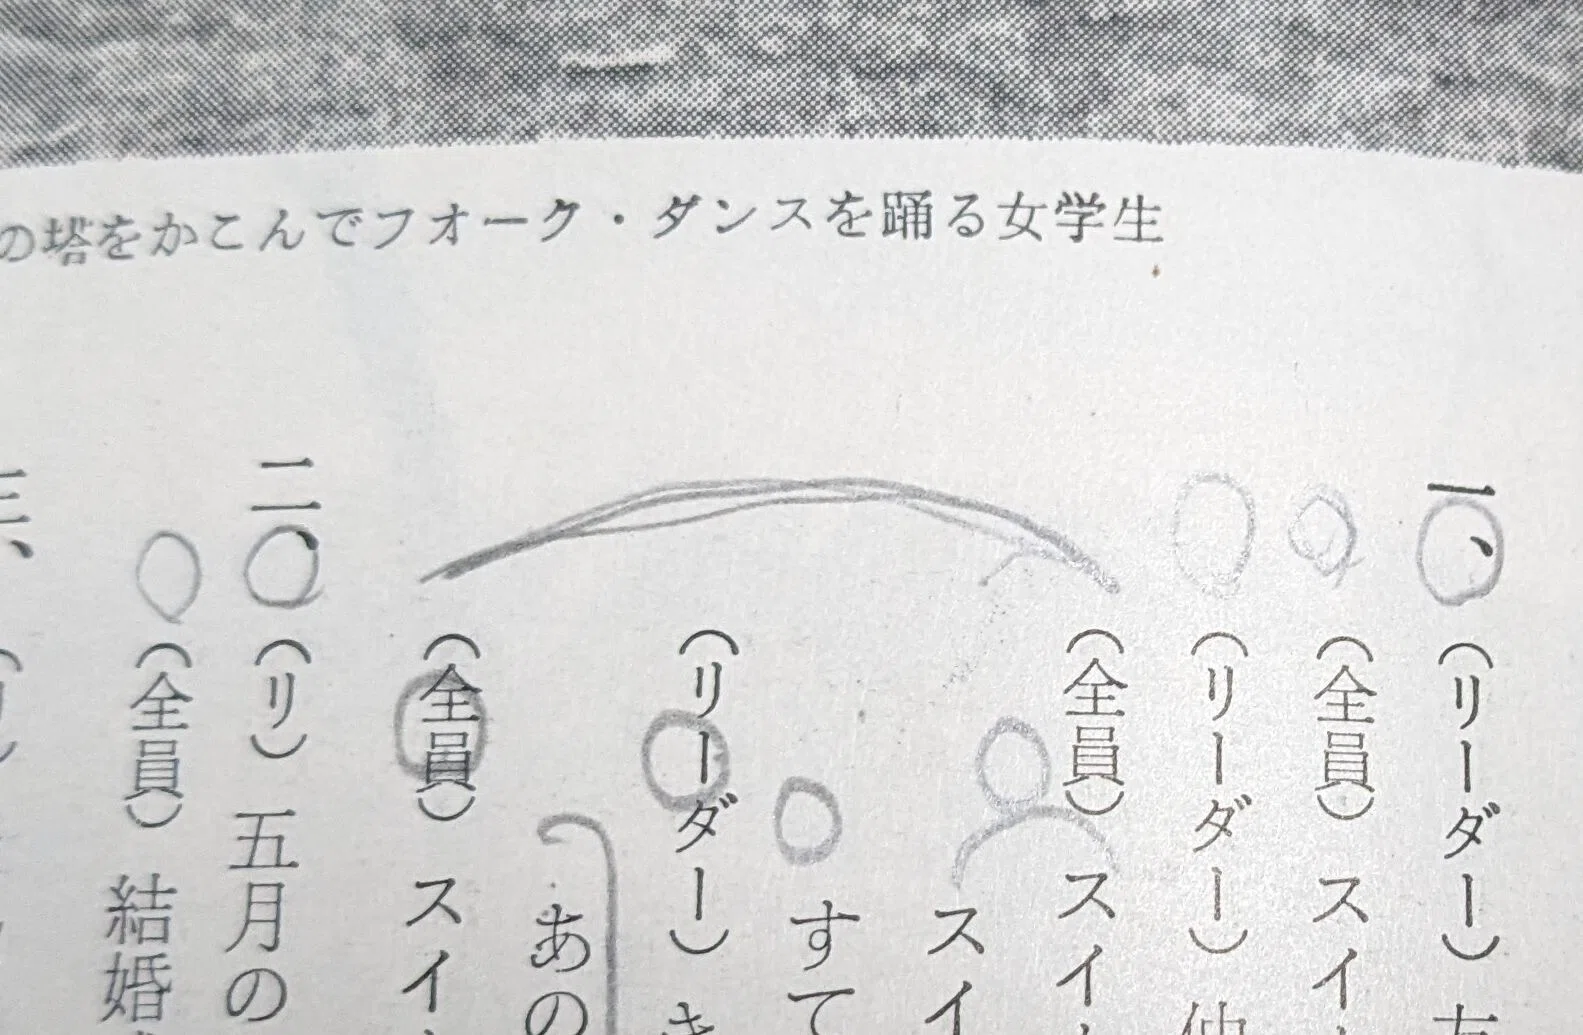 の塔をかこんでフォーク・ダンスを踊る女学生
一、(リーダー)
(全員)スイ
(リーダー)仲
(全員)スイ
スイ
すて
(リーダー)き
あの
(全員)スイ
二、(リ)五月の
(全員)結婚
三、